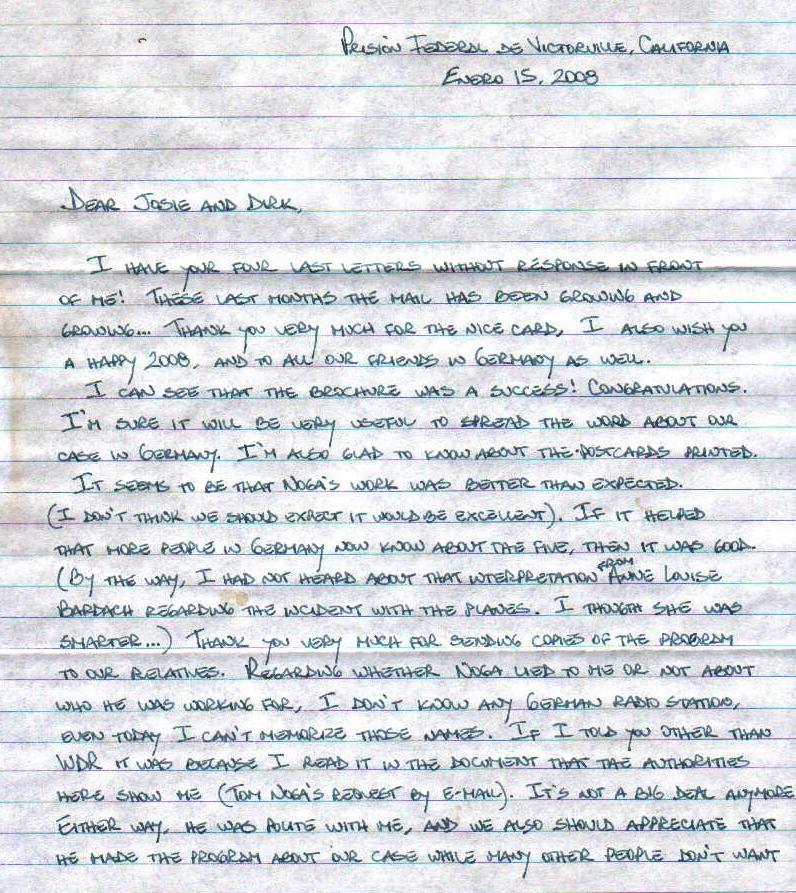 Prisión Federal de Victorville, California
Enero 15, 2008
Dear Josie and Dirk,
I have your four last letters without response in front
of me! These last months the mail has been growing and
growing... Thank you very much for the nice card, I also wish you
a happy 2008, and to all our friends in Germany as well.
I can see that the brochure was a success! Congratulations.
I'm sure it will be very useful to spread the word about our
case in Germany. I'm also glad to know about the postcards printed.
It seems to be that Noga's work was better than expected.
(I don't think we should expect it would be excellent). If it helped
that more people in Germany now know about the Five, then it was good.
(By the way, I had not heard about that interpretation from Anne Louise
Bardach regarding the incident with the planes. I though she was
smarter...) Thank you very much for sending copies of the program
to our relatives. Regarding whether Noga lied to me or not about
who he was working for, I don't know any German radio station,
even today I can't memorize those names. If I told you other than
WDR it was because I read it in the document that the authorities
here show me (Tom Noga's request by e-mail). It's not a big deal anymore
Either way, he was polite with me, and we also should appreciate that
he made the program about our case while many other people don't want